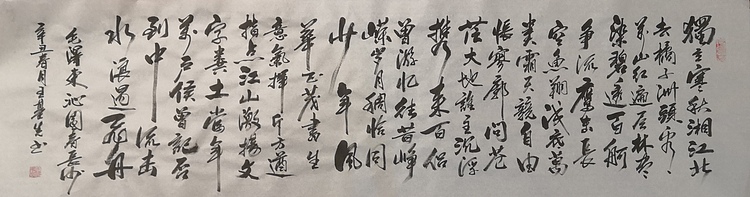 獨立寒秋湘江北
去橘子洲頭看
萬山红遍层林尽
染碧透百舸
争流鹰击長
空魚翔浅底萬
类霜天競自由
悵寥廓問苍
茫大地誰主沉浮
携来百侣
曾游忆往昔峥
嵘岁月稠恰同
少年風
華正茂書生
意氣揮斥方遒
指点江山激扬文
字粪土當年
万户侯曾記否
到中流击
水浪遏飛舟
毛澤東沁園春長沙
辛丑春月王